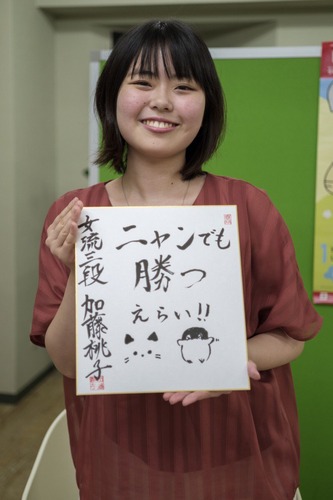 ニャンでも
勝つ
えらい!!
女流三段 加藤桃子